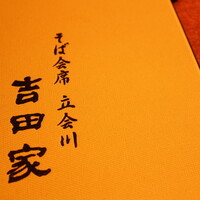 そば会席 立会川
吉田家